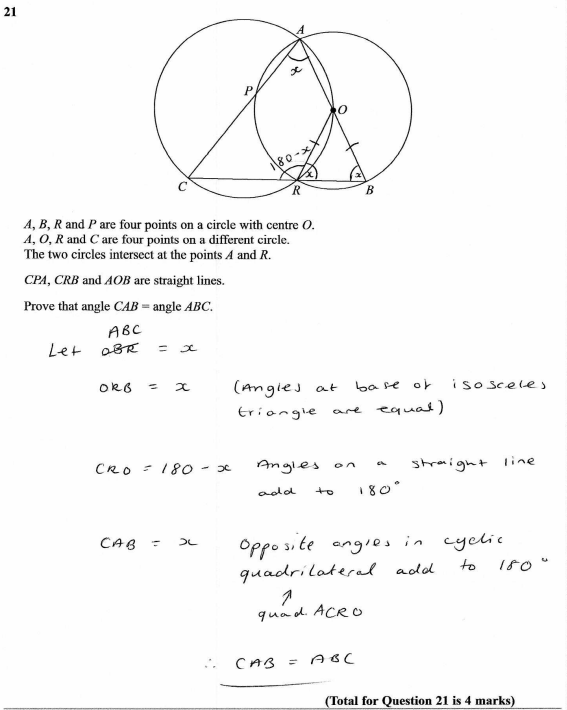 21
A
x
P
O
180-x
x
x
C
R
B
A, B, R and P are four points on a circle with centre O.
A, O, R and C are four points on a different circle.
The two circles intersect at the points A and R.
CPA, CRB and AOB are straight lines.
Prove that angle CAB = angle ABC.
ABC
Let OBR = x
ORB = x (Angles at base of isosceles
triangle are equal)
CRO = 180 - x Angles on a straight line
add to 180°
CAB = x Opposite angles in cyclic
quadrilateral add to 180°
↑
quad. ACRO
∴ CAB = ABC
(Total for Question 21 is 4 marks)